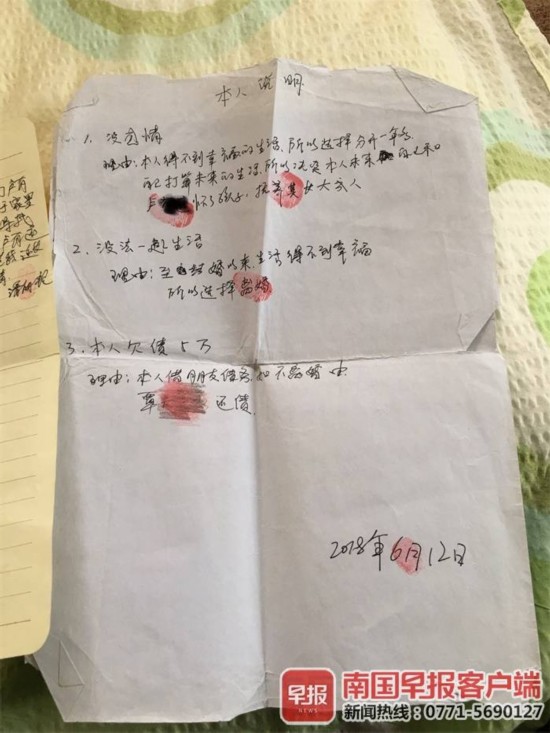 本人说明
1、没感情
理由:本人得不到幸福的生活、所以选择分开一年多
自己打算未来的生活、所以决定本人未来
卢 怀了孩子,
2、没法一起生活
理由:至结婚以来生活得不到幸福
所以选择离婚
3、本人欠债5万
理由:本人借朋友债务如不离婚由
覃 还债
2018年6月12日
早报
NEWS
南国早报客户端
新闻热线:0771-5690127